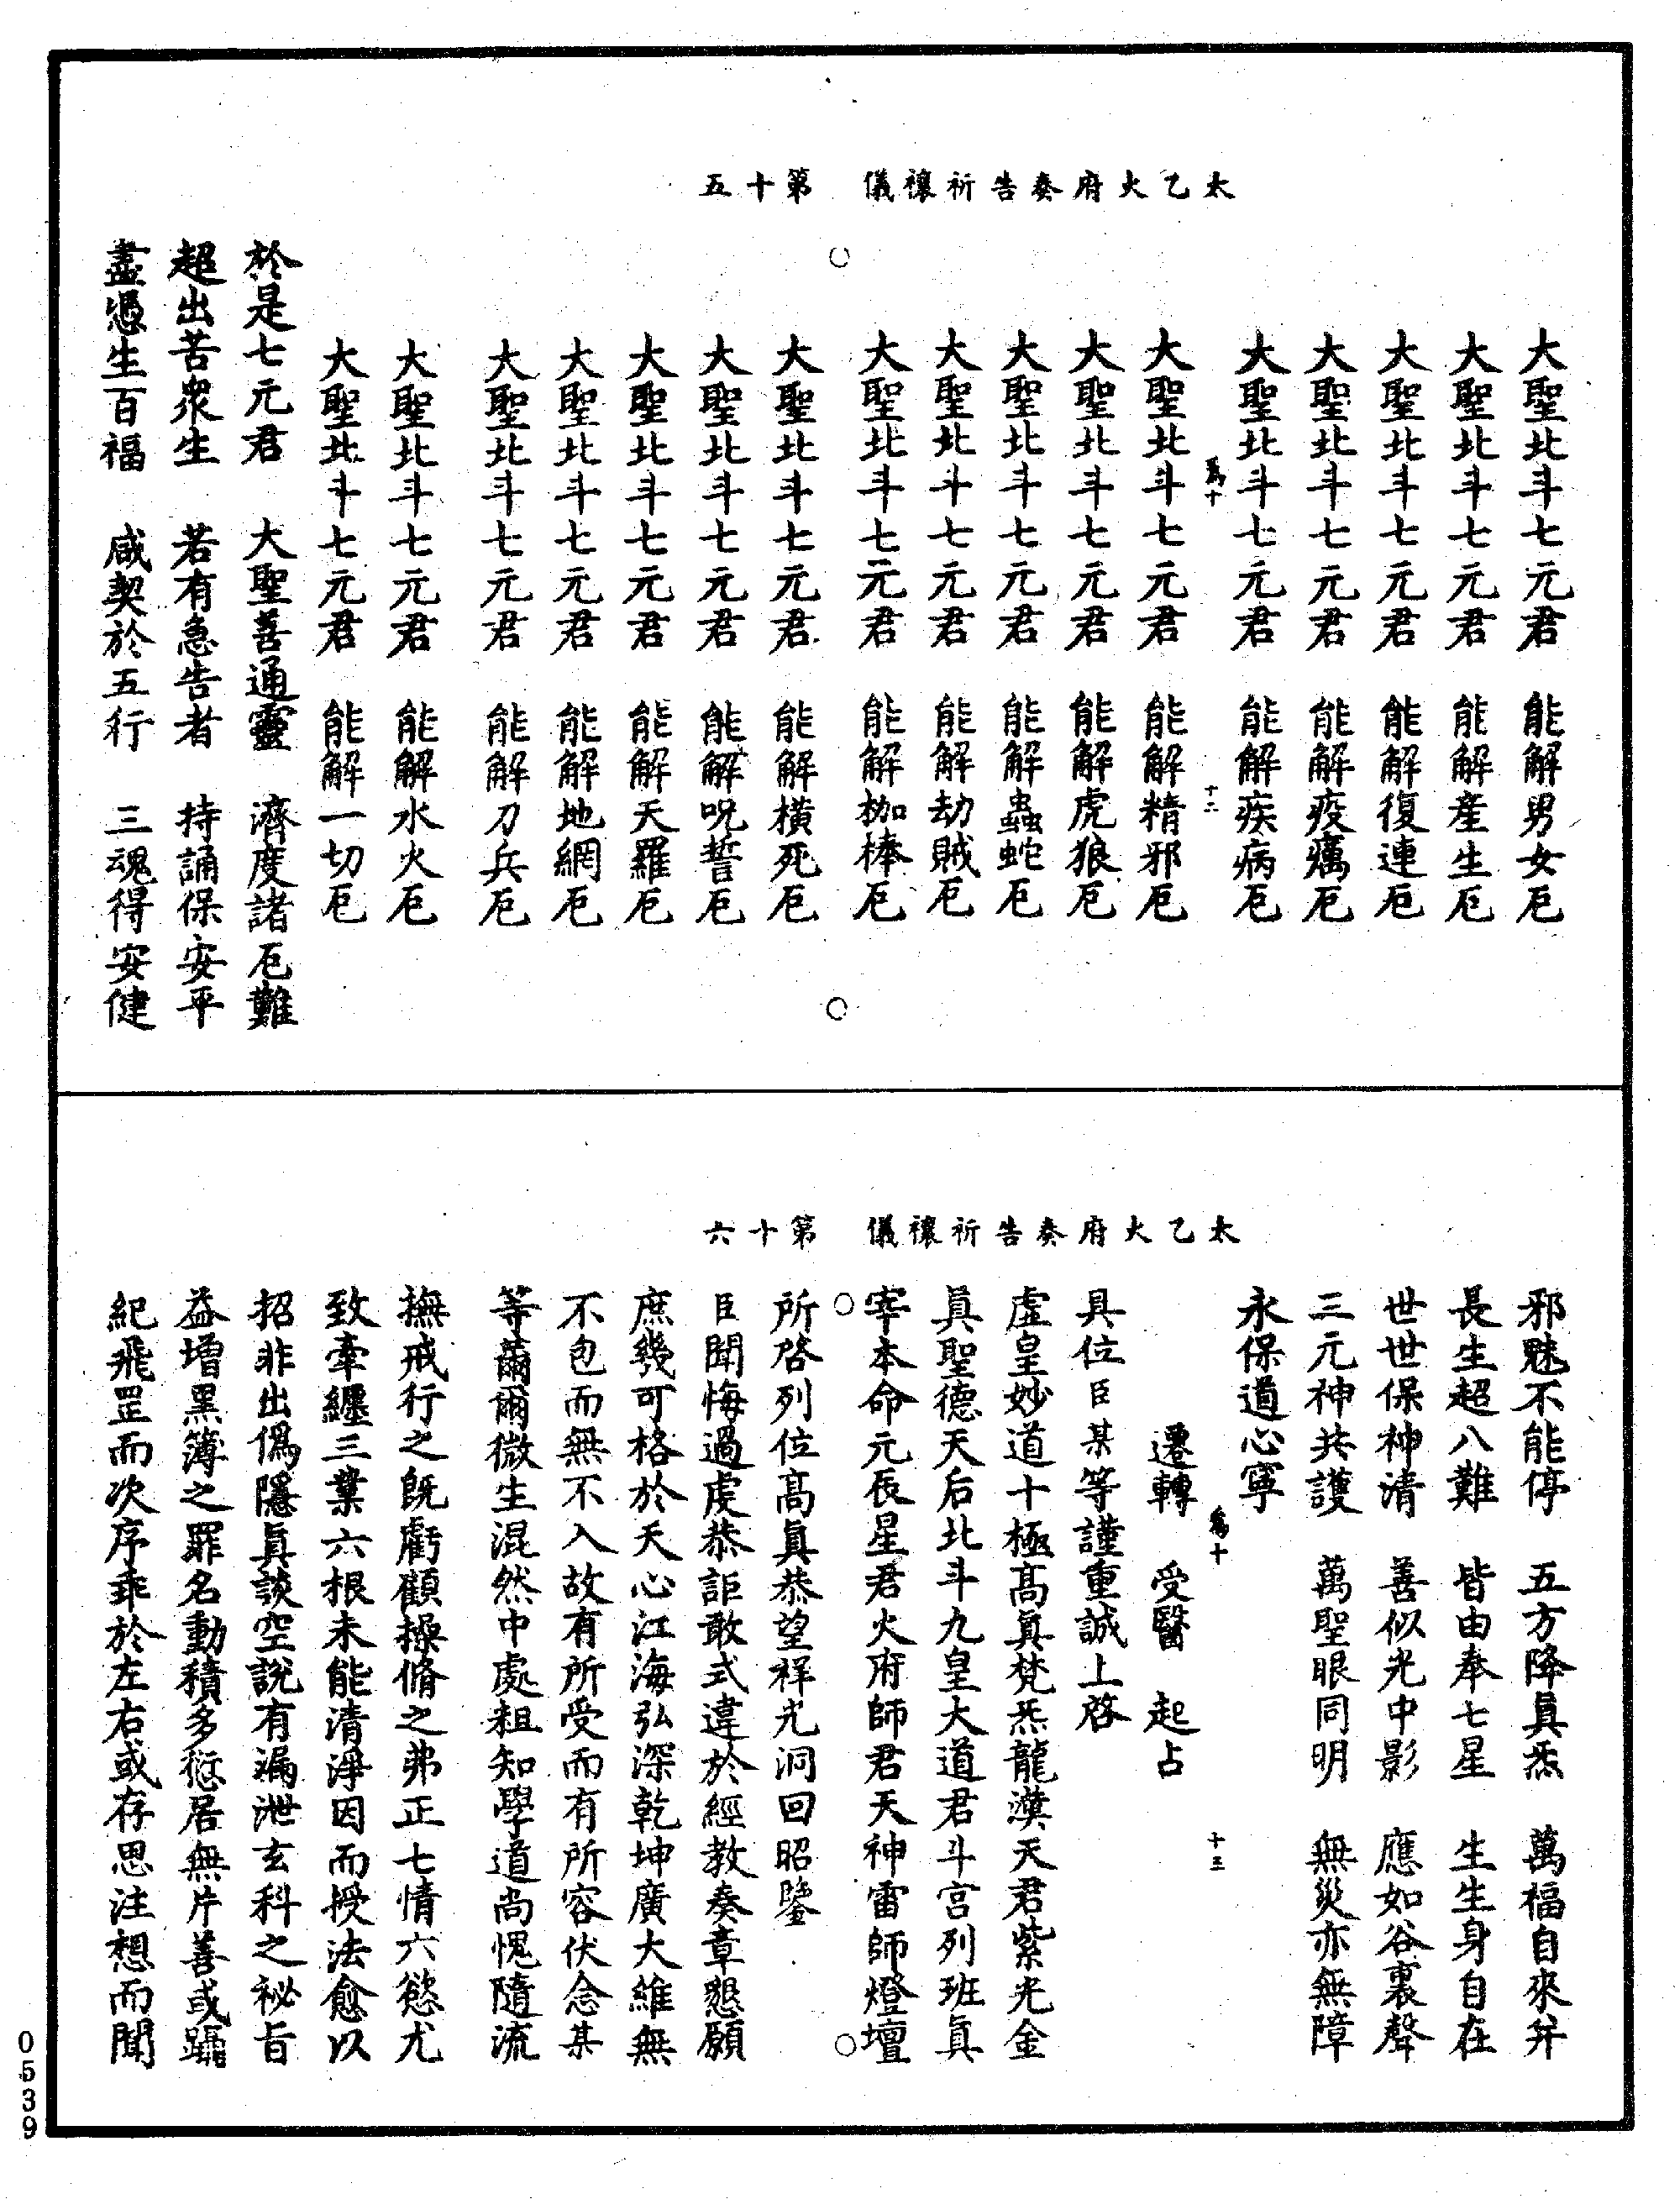 太乙火府奏告祈禳儀　第十五
大聖北斗七元君　能解男女厄
大聖北斗七元君　能解產生厄
大聖北斗七元君　能解復連厄
大聖北斗七元君　能解疫癘厄
大聖北斗七元君　能解疾病厄
十二
大聖北斗七元君　能解精邪厄
大聖北斗七元君　能解虎狼厄
大聖北斗七元君　能解蟲蛇厄
大聖北斗七元君　能解劫賊厄
大聖北斗七元君　能解枷棒厄
大聖北斗七元君　能解橫死厄
大聖北斗七元君　能解呪誓厄
大聖北斗七元君　能解天羅厄
大聖北斗七元君　能解地網厄
大聖北斗七元君　能解刀兵厄
大聖北斗七元君　能解水火厄
大聖北斗七元君　能解一切厄
於是七元君　大聖善通靈　濟度諸厄難
超出苦衆生　若有急告者　持誦保安平
盡憑生百福　咸契於五行　三魂得安健
太乙火府奏告祈禳儀　第十六
邪魅不能停　五方降眞炁　萬福自來幷
長生超八難　皆由奉七星　生生身自在
世世保神清　善似光中影　應如谷裏聲
三元神共護　萬聖眼同明　無災亦無障
永保道心寧
十三
遷轉　受醫　起占
具位臣某等謹重誠上啓
虛皇妙道十極高眞梵炁龍漢天君紫光金
眞聖德天后北斗九皇大道君斗宮列班眞
宰本命元辰星君火府師君天神雷師燈壇
所啓列位高眞恭望祥光洞回昭鑒
臣聞悔過虔恭詎敢式違於經教奏章懇願
庶幾可格於天心江海弘深乾坤廣大維無
不包而無不入故有所受而有所容伏念某
等蕞爾微生混然中處粗知學道尚愧隨流
撫戒行之旣虧顧操脩之弗正七情六慾尤
致牽纏三業六根未能清淨因而授法愈以
招非出僞隱眞談空說有漏泄玄科之祕旨
益增黑簿之罪名動積多愆居無片善或躡
紀飛罡而次序乖於左右或存思注想而聞
0539